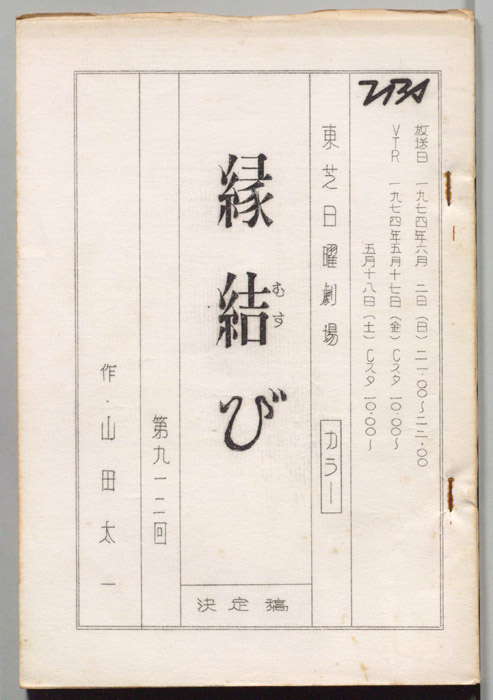 TBS
放送日 一九七四年六月 二日（日）二一.〇〇～二二.〇〇
VTR 一九七四年五月十七日（金）Cスタ 一〇.〇〇～
五月十八日（土）Cスタ 一〇.〇〇～
東芝日曜劇場 カラー
縁結び
むす
決定稿
第九一二回
作・山田太一